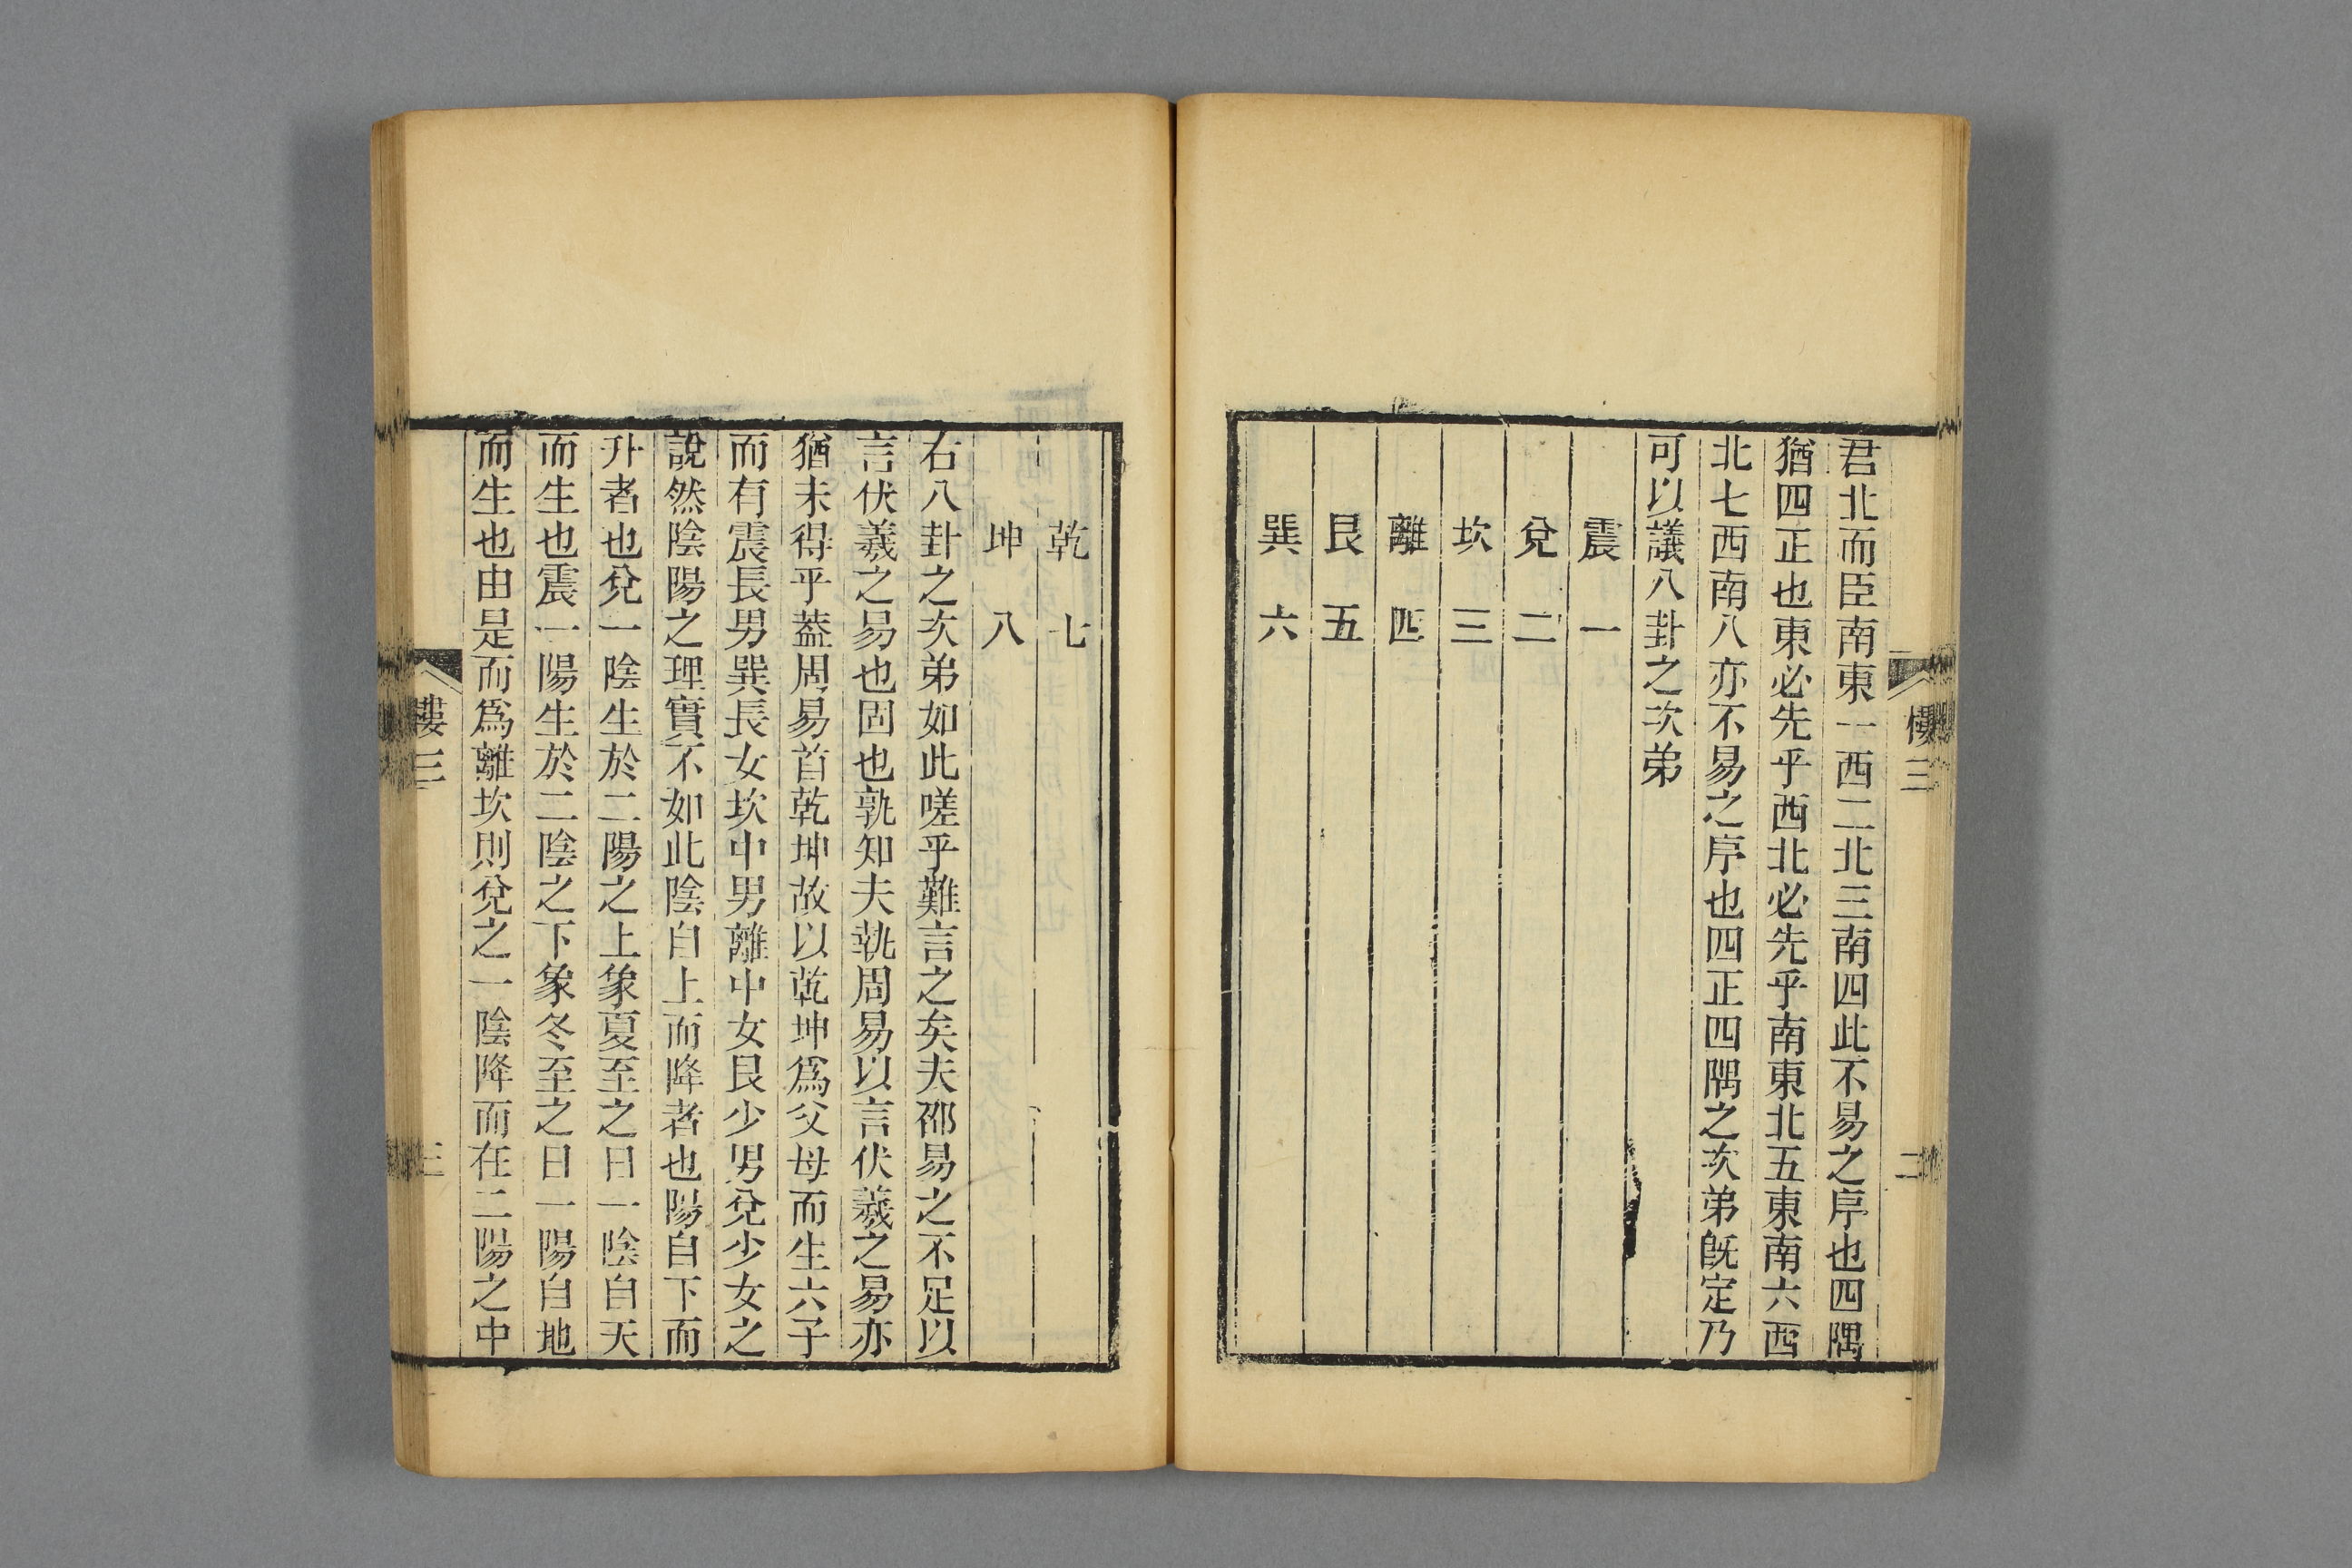 君北而臣南東一西二北三南四此不易之序也四隅
猶四正也東必先乎西北必先乎南東北五東南六西
北七西南八亦不易之序也四正四隅之次弟旣定乃
可以議八卦之次弟
震 一
兌 二
坎 三
離 四
艮 五
巽 六
樓三 二
乾 七
坤 八
右八卦之次弟如此嗟乎難言之矣夫邵易之不足以
言伏羲之易也固也孰知夫執周易以言伏羲之易亦
猶未得乎蓋周易首乾坤故以乾坤爲父母而生六子
而有震長男巽長女坎中男離中女艮少男兌少女之
說然陰陽之理實不如此陰自上而降者也陽自下而
升者也兌一陰生於二陽之上象夏至之日一陰自天
而生也震一陽生於二陰之下象冬至之日一陽自地
而生也由是而爲離坎則兌之一陰降而在二陽之中
樓三 三